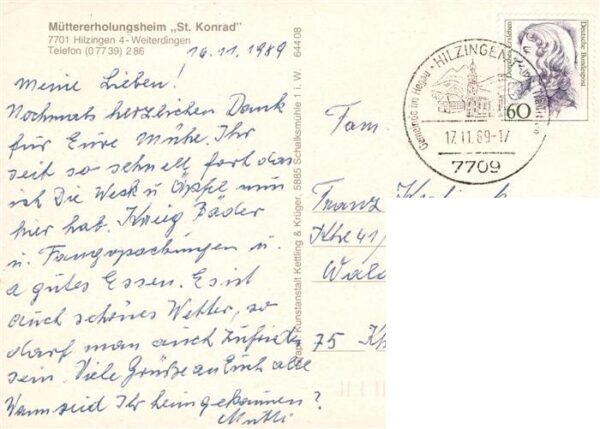 Müttererholungsheim „St. Konrad"
7701 Hilzingen 4 - Weiterdingen
Telefon (0 77 39) 2 86
16.11.1989
Meine Lieben!
Nochmals herzlichen Dank
für Eure Mühe. Ihr
seit so schnell fort das
ich Die Weck u Äpfel nun
hier hab. Krieg Bäder
u. Fangopackungen u.
a gutes Essen. Es ist
auch schönes Wetter, so
darf man auch zufrieden
sein. Viele Grüße an Euch alle
Wann seid Ihr heimgekommen?
Mutti
Kunstanstalt Kettling & Krüger, 5885 Schalksmühle 1 i. W. 644 08
HILZINGEN
Gemeinde im Hegau
17.11.89-17
7709
Deutsche Bundespost
60
Fam.
Franz
Wald
75